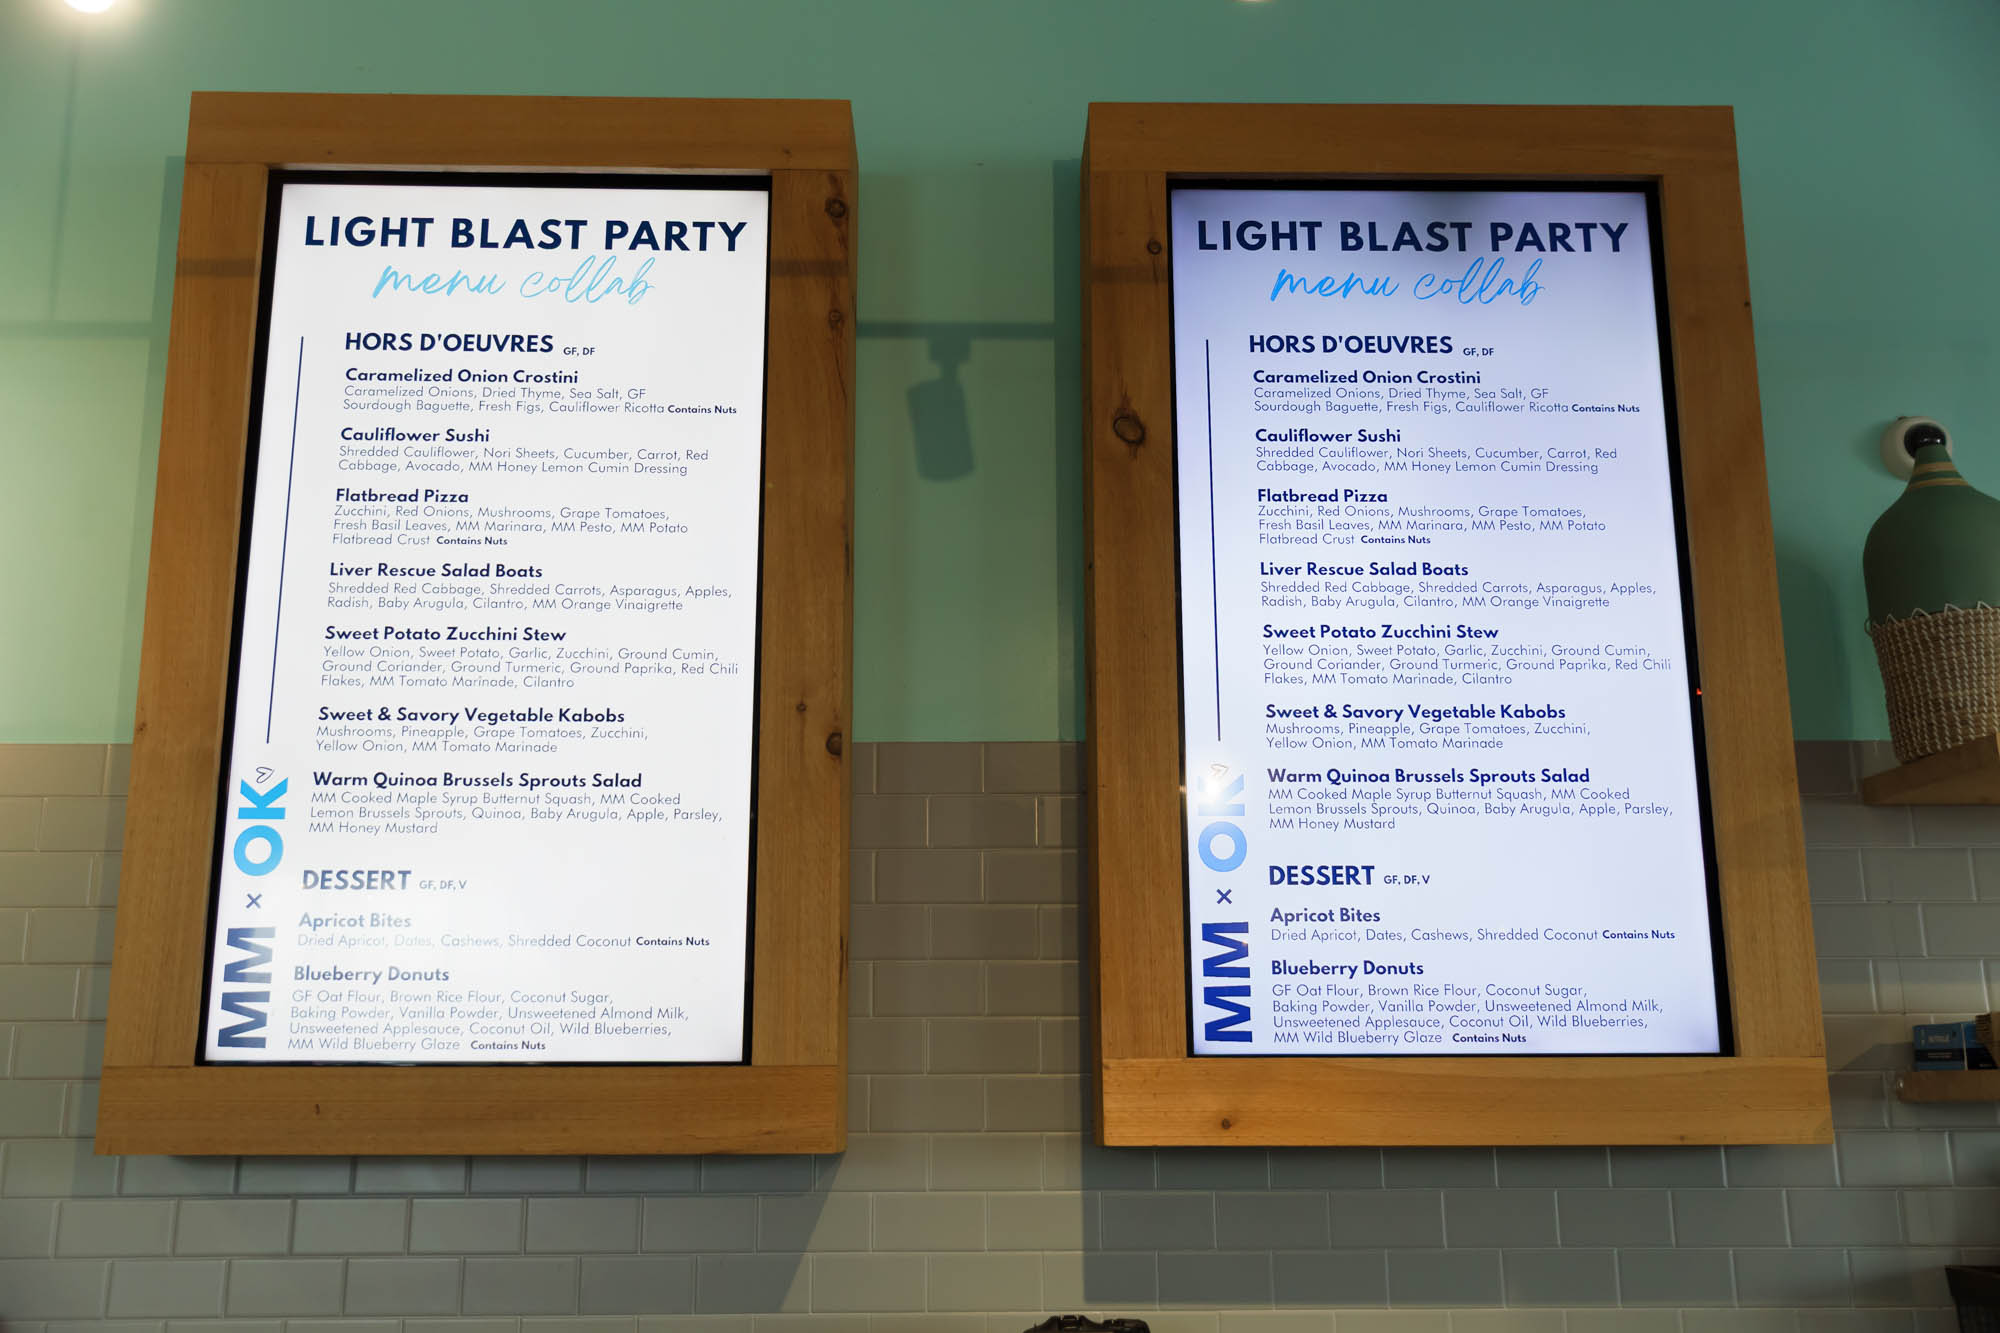 LIGHT BLAST PARTY
menu collab
HORS D'OEUVRES GF, DF
Caramelized Onion Crostini
Caramelized Onions, Dried Thyme, Sea Salt, GF
Sourdough Baguette, Fresh Figs, Cauliflower Ricotta Contains Nuts
Cauliflower Sushi
Shredded Cauliflower, Nori Sheets, Cucumber, Carrot, Red
Cabbage, Avocado, MM Honey Lemon Cumin Dressing
Flatbread Pizza
Zucchini, Red Onions, Mushrooms, Grape Tomatoes,
Fresh Basil Leaves, MM Marinara, MM Pesto, MM Potato
Flatbread Crust Contains Nuts
Liver Rescue Salad Boats
Shredded Red Cabbage, Shredded Carrots, Asparagus, Apples,
Radish, Baby Arugula, Cilantro, MM Orange Vinaigrette
Sweet Potato Zucchini Stew
Yellow Onion, Sweet Potato, Garlic, Zucchini, Ground Cumin,
Ground Coriander, Ground Turmeric, Ground Paprika, Red Chili
Flakes, MM Tomato Marinade, Cilantro
Sweet & Savory Vegetable Kabobs
Mushrooms, Pineapple, Grape Tomatoes, Zucchini,
Yellow Onion, MM Tomato Marinade
Warm Quinoa Brussels Sprouts Salad
MM Cooked Maple Syrup Butternut Squash, MM Cooked
Lemon Brussels Sprouts, Quinoa, Baby Arugula, Apple, Parsley,
MM Honey Mustard
DESSERT GF, DF, V
Apricot Bites
Dried Apricot, Dates, Cashews, Shredded Coconut Contains Nuts
Blueberry Donuts
GF Oat Flour, Brown Rice Flour, Coconut Sugar,
Baking Powder, Vanilla Powder, Unsweetened Almond Milk,
Unsweetened Applesauce, Coconut Oil, Wild Blueberries,
MM Wild Blueberry Glaze Contains Nuts
MM × OK
LIGHT BLAST PARTY
menu collab
HORS D'OEUVRES GF, DF
Caramelized Onion Crostini
Caramelized Onions, Dried Thyme, Sea Salt, GF
Sourdough Baguette, Fresh Figs, Cauliflower Ricotta Contains Nuts
Cauliflower Sushi
Shredded Cauliflower, Nori Sheets, Cucumber, Carrot, Red
Cabbage, Avocado, MM Honey Lemon Cumin Dressing
Flatbread Pizza
Zucchini, Red Onions, Mushrooms, Grape Tomatoes,
Fresh Basil Leaves, MM Marinara, MM Pesto, MM Potato
Flatbread Crust Contains Nuts
Liver Rescue Salad Boats
Shredded Red Cabbage, Shredded Carrots, Asparagus, Apples,
Radish, Baby Arugula, Cilantro, MM Orange Vinaigrette
Sweet Potato Zucchini Stew
Yellow Onion, Sweet Potato, Garlic, Zucchini, Ground Cumin,
Ground Coriander, Ground Turmeric, Ground Paprika, Red Chili
Flakes, MM Tomato Marinade, Cilantro
Sweet & Savory Vegetable Kabobs
Mushrooms, Pineapple, Grape Tomatoes, Zucchini,
Yellow Onion, MM Tomato Marinade
Warm Quinoa Brussels Sprouts Salad
MM Cooked Maple Syrup Butternut Squash, MM Cooked
Lemon Brussels Sprouts, Quinoa, Baby Arugula, Apple, Parsley,
MM Honey Mustard
DESSERT GF, DF, V
Apricot Bites
Dried Apricot, Dates, Cashews, Shredded Coconut Contains Nuts
Blueberry Donuts
GF Oat Flour, Brown Rice Flour, Coconut Sugar,
Baking Powder, Vanilla Powder, Unsweetened Almond Milk,
Unsweetened Applesauce, Coconut Oil, Wild Blueberries,
MM Wild Blueberry Glaze Contains Nuts
MM × OK
NITRILE